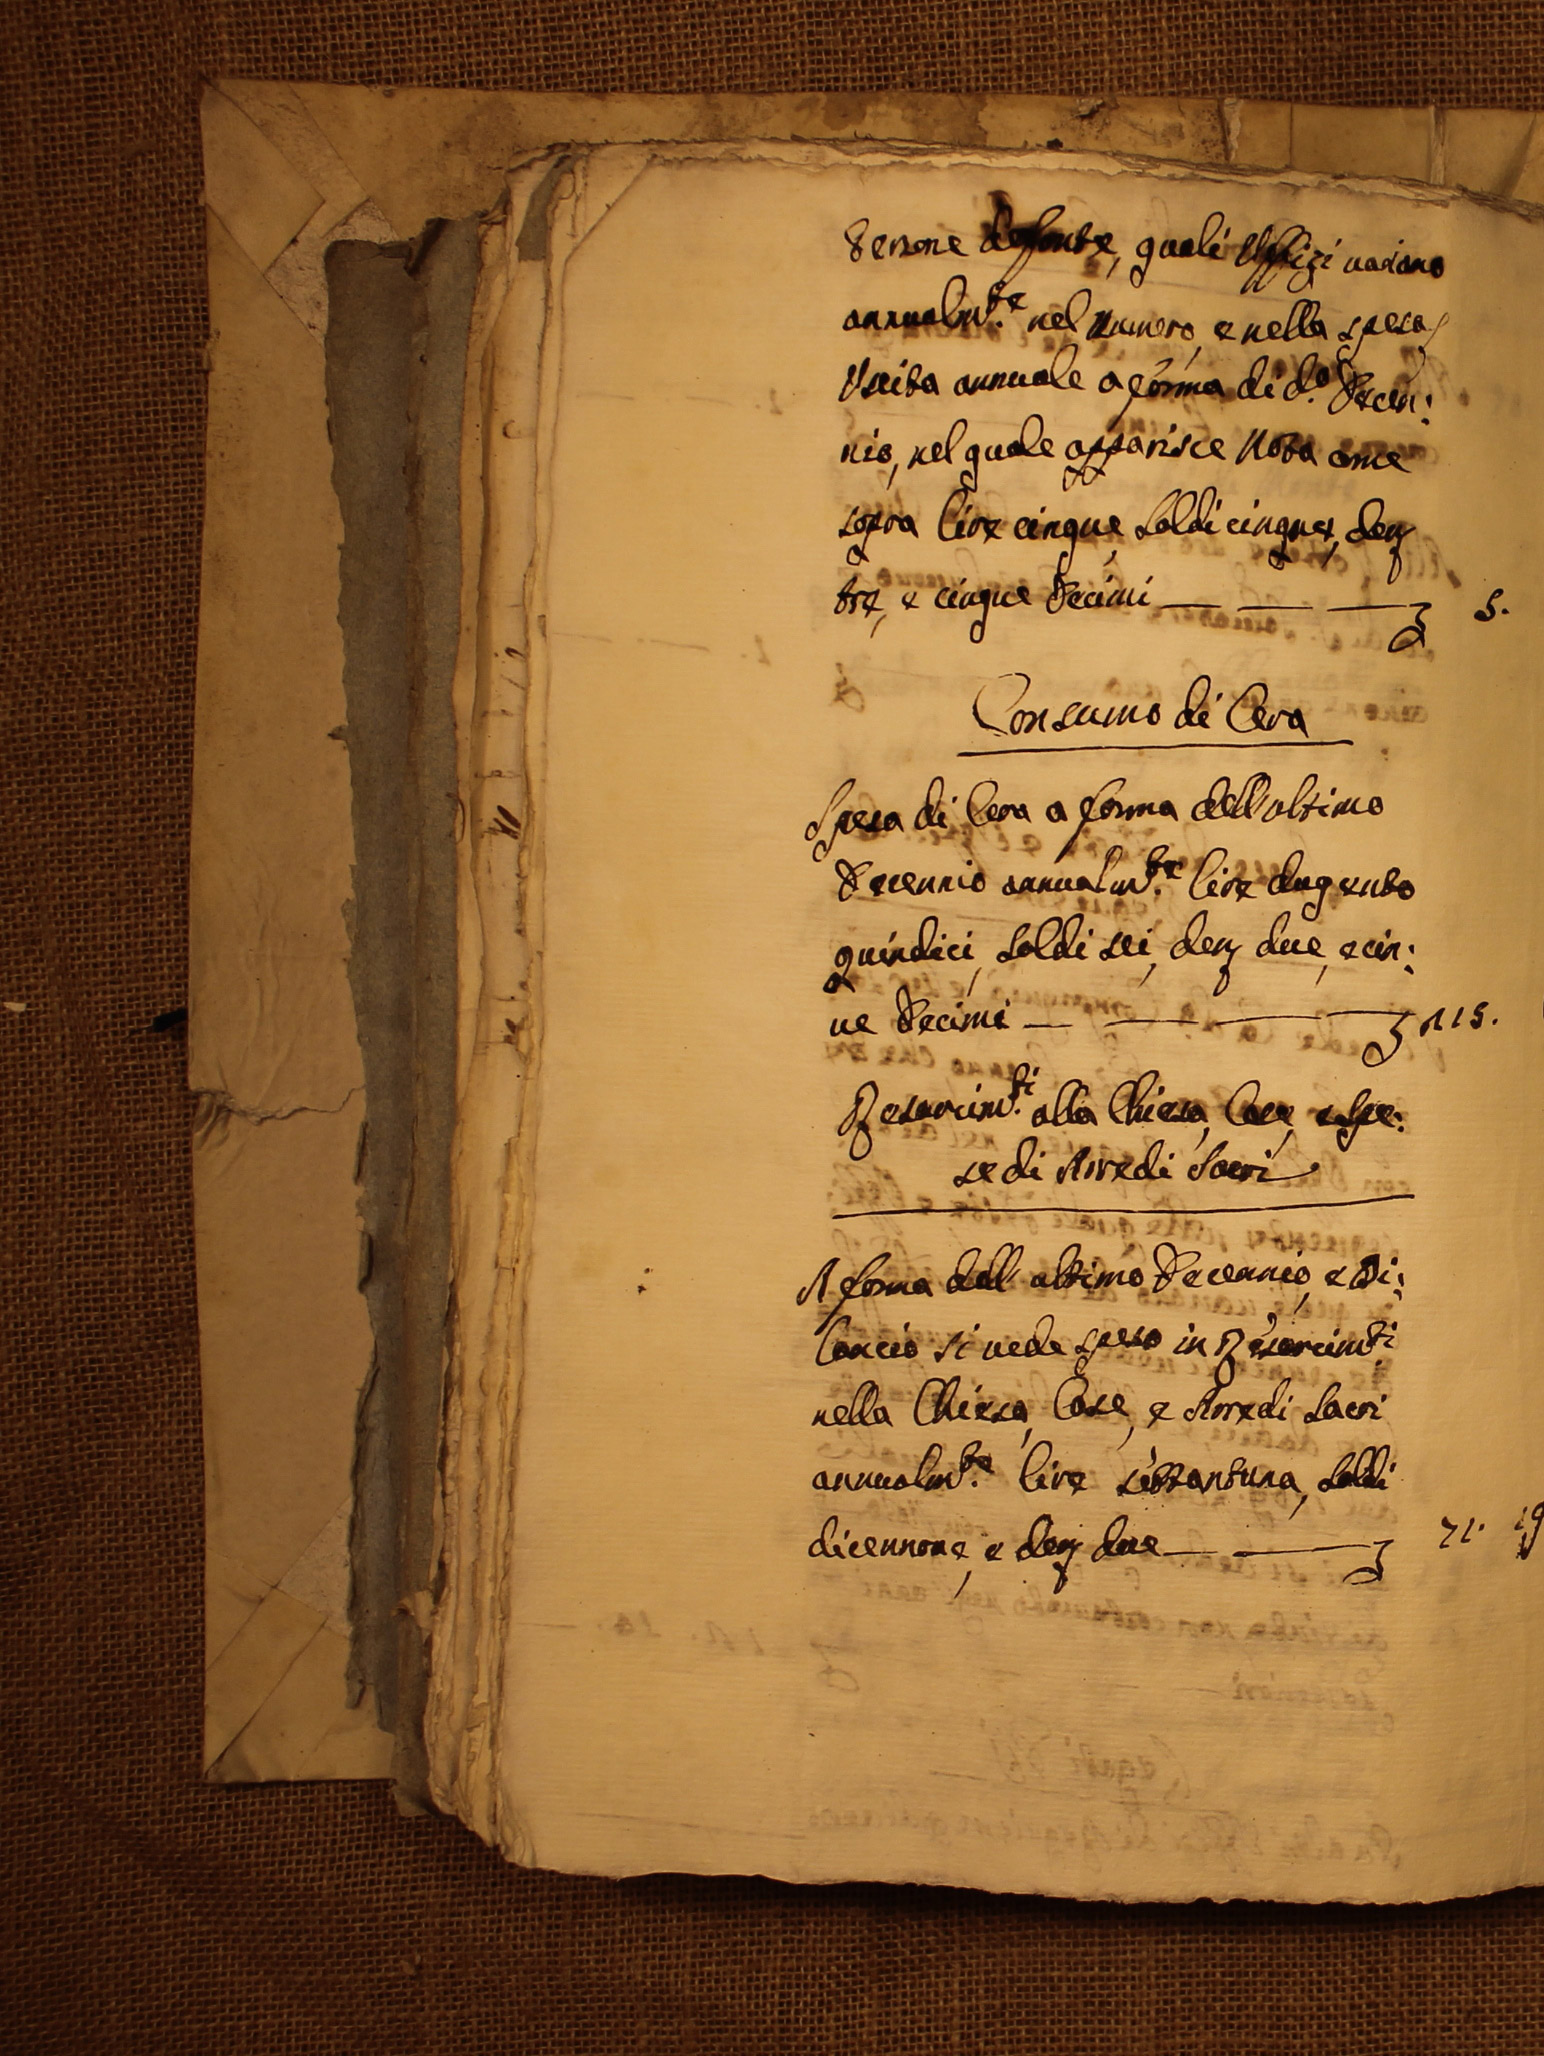 Persone defonte, quali Uffizi variano
annualm.te nel numero, e nella spesa,
Uscita annuale a forma di d.o Decen:
nio, nel quale apparisce Nota ome
sopra lire cinque, soldi cinque, den
tre, e cinque Decimi — — — 5.
Consumo di Cera
Spesa di Cera a forma dell'ultimo
Decennio annualm.te lire dugento
quindici, soldi sei, den due, e cin:
ue Decimi — — — — 215.
Resarcim.ti alla Chiesa, Case, e Spe:
se di Arredi Sacri
A forma dell'ultimo Decennio, e Bi:
lancio si vede speso in Resarcim.ti
nella Chiesa, Case, e Arredi Sacri
annualm.te lire settantuna, soldi
dicennove, e den due — — 71. 19